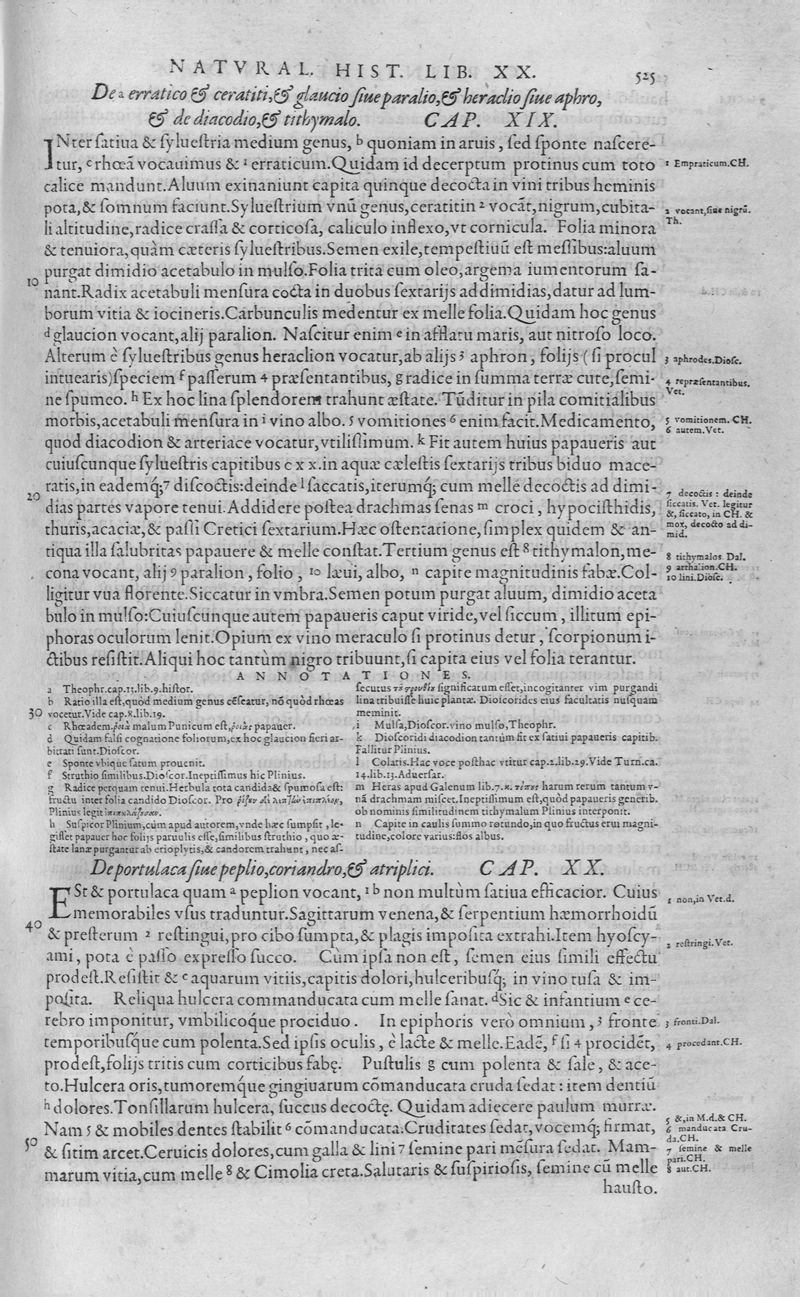 NATVRAL. HIST. LIB. XX. 525
De a erratico & ceratiti, & glaucio siue paralio, & heraclio siue aphro,
& de diacodio, & tithymalo. CAP. XIX.
INter satiua & syluestria medium genus, b quoniam in aruis, sed sponte nascere-
tur, c rhœā vocauimus & 1 erraticum. Quidam id decerptum protinus cum toto
calice mandunt. Aluum exinaniunt capita quinque decocta in vini tribus heminis
pota, & somnum faciunt. Syluestrium vnū genus, ceratitin 2 vocāt, nigrum, cubita-
li altitudine, radice crassa & corticosa, caliculo inflexo, vt cornicula. Folia minora
& tenuiora, quàm cæteris syluestribus. Semen exile, tempestiuū est messibus: aluum
10 purgat dimidio acetabulo in mulso. Folia trita cum oleo, argema iumentorum sa-
nant. Radix acetabuli mensura cocta in duobus sextarijs ad dimidias, datur ad lum-
borum vitia & iocineris. Carbunculis medentur ex melle folia. Quidam hoc genus
d glaucion vocant, alij paralion. Nascitur enim e in afflatu maris, aut nitroso loco.
Alterum è syluestribus genus heraclion vocatur, ab alijs 3 aphron, folijs (si procul
intuearis) speciem f passerum 4 præsentantibus, g radice in summa terræ cute, semi-
ne spumeo. h Ex hoc lina splendorem trahunt æstate. Tūditur in pila comitialibus
morbis, acetabuli mensura in i vino albo. 5 vomitiones 6 enim facit. Medicamento,
quod diacodion & arteriace vocatur, vtilissimum. k Fit autem huius papaueris aut
cuiuscunque syluestris capitibus c x x. in aquæ cælestis sextarijs tribus biduo mace-
20 ratis, in eademq́; 7 discoctis: deinde l saccatis, iterumq́; cum melle decoctis ad dimi-
dias partes vapore tenui. Addidere postea drachmas senas m croci, hypocisthidis,
thuris, acaciæ, & passi Cretici sextarium. Hæc ostentatione, simplex quidem & an-
tiqua illa salubritas papauere & melle constat. Tertium genus est 8 tithymalon, me-
cona vocant, alij 9 paralion, folio, 10 læui, albo, n capite magnitudinis fabæ. Col-
ligitur vua florente. Siccatur in vmbra. Semen potum purgat aluum, dimidio aceta
bulo in mulso: Cuiuscunque autem papaueris caput viride, vel siccum, illitum epi-
phoras oculorum lenit. Opium ex vino meraculo si protinus detur, scorpionum i-
ctibus resistit. Aliqui hoc tantùm nigro tribuunt, si capita eius vel folia terantur.
1 Empraticum. CH.
2 vocant, siue nigrū.
Th.
3 aphrodes. Diosc.
4 repræsentantibus.
Vet.
5 vomitionem. CH.
6 autem. Vet.
7 decoctis: deinde
siccatis. Vet. legitur
&, siccato, in CH. &
mox, decocto ad di-
mid.
8 tithymalos. Dal.
9 arthalion. CH.
10 lini. Diosc.
ANNOTATIONES.
a Theophr. cap. 13. lib. 9. histor.
b Ratio illa est, quòd medium genus cēseatur, nō quòd rhœas
30 vocetur. Vide cap. 8. lib. 19.
c Rhœadem. ῥοιὰ malum Punicum est, ῥοιὰς papauer.
d Quidam falsi cognatione foliorum, ex hoc glaucion fieri ar-
bitrati sunt. Dioscor.
e Sponte vbique satum prouenit.
f Struthio similibus. Dioscor. Ineptissimus hic Plinius.
g Radice perquam tenui. Herbula tota candida & spumosa est:
fructu inter folia candido Dioscor. Pro
Plinius legit
h Suspicor Plinium, cùm apud autorem, vnde hæc sumpsit, le-
gisset papauer hoc folijs paruulis esse, similibus struthio, quo æ-
state lanæ purgantur ab erioplytis, & candorem trahunt, nec as-
secutus significatum esset, incogitanter vim purgandi
lina tribuisse huic plantæ. Dioscorides eius facultatis nusquam
meminit.
i Mulsa, Dioscor. vino mulso, Theophr.
k Dioscoridi diacodion tantùm fit ex satiui papaueris capitib.
Fallitur Plinius.
l Colatis. Hac voce posthac vtitur cap. 2. lib. 29. Vide Turn. ca.
14. lib. 13. Aduersar.
m Heras apud Galenum lib. 7. κ. τόπους harum rerum tantum v-
nā drachmam miscet. Ineptissimum est, quòd papaueris generib.
ob nominis similitudinem tithymalum Plinius interponit.
n Capite in caulis summo rotundo, in quo fructus erui magni-
tudine, colore varius: flos albus.
De portulaca siue peplio, coriandro, & atriplici. CAP. XX.
ESt & portulaca quam a peplion vocant, 1 b non multùm satiua efficacior. Cuius
memorabiles vsus traduntur. Sagittarum venena, & serpentium hæmorrhoidū
40 & presterum 2 restingui, pro cibo sumpta, & plagis imposita extrahi. Item hyoscy-
ami, pota è passo expresso succo. Cùm ipsa non est, semen eius simili effectu
prodest. Resistit & c aquarum vitiis, capitis dolori, hulceribusq́; in vino tusa & im-
posita. Reliqua hulcera commanducata cum melle sanat. d Sic & infantium e ce-
rebro imponitur, vmbilicoq́ue prociduo. In epiphoris verò omnium, 3 fronte
temporibusq́ue cum polenta. Sed ipsis oculis, è lacte & melle. Eadē, f si 4 procidēt,
prodest, folijs tritis cum corticibus fabę. Pustulis g cum polenta & sale, & ace-
to. Hulcera oris, tumoremq́ue gingiuarum cōmanducata cruda sedat: item dentiū
h dolores. Tonsillarum hulcera, succus decoctę. Quidam adiecere paulum murræ.
Nam 5 & mobiles dentes stabilit 6 cōmanducata: Cruditates sedat, vocemq́; firmat,
50 & sitim arcet. Ceruicis dolores, cum galla & lini 7 semine pari mēsura sedat. Mam-
marum vitia, cum melle 8 & Cimolia creta. Salutaris & suspiriosis, semine cū melle
hausto.
1 non, in Vet. d.
2 restringi. Vet.
3 fronti. Dal.
4 procedant. CH.
5 &, in M. d. & CH.
6 manducata Cru-
da. CH.
7 semine & melle
pari. CH.
8 aut. CH.